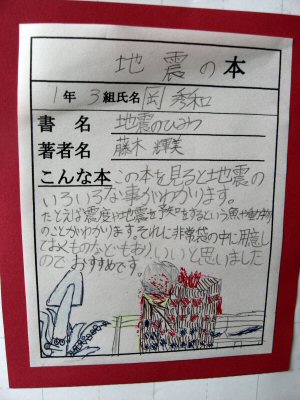 地震の本
1年 3組氏名 岡 秀和
書 名 地震のひみつ
著者名 藤木 輝美
こんな本 この本を見ると地震の
いろいろな事がわかります。
たとえば震度や地震を予知をするという魚や動物
のことがわかります。それに非常袋の中に用意し
ておくものなどもあり、いいと思いました
のでおすすめです。